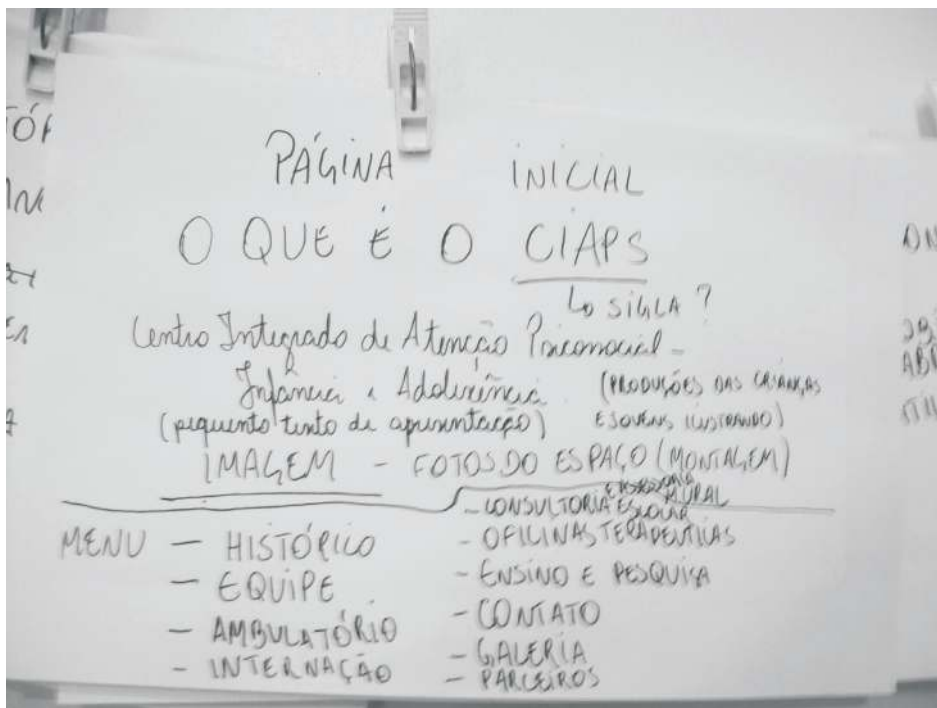 PÁGINA INICIAL
O QUE É O CIAPS
↳ SIGLA?
Centro Integrado de Atenção Psicossocial -
Infância e Adolescência (PRODUÇÕES DAS CRIANÇAS
(pequento texto de apresentação) E JOVENS ILUSTRANDO)
IMAGEM - FOTOS DO ESPAÇO (MONTAGEM)
MENU - HISTÓRICO
- EQUIPE
- AMBULATÓRIO
- INTERNAÇÃO
- CONSULTORIA ESCOLAR RURAL
- OFICINAS TERAPEUTICAS
- ENSINO E PESQUISA
- CONTATO
- GALERIA
- PARCEIROS